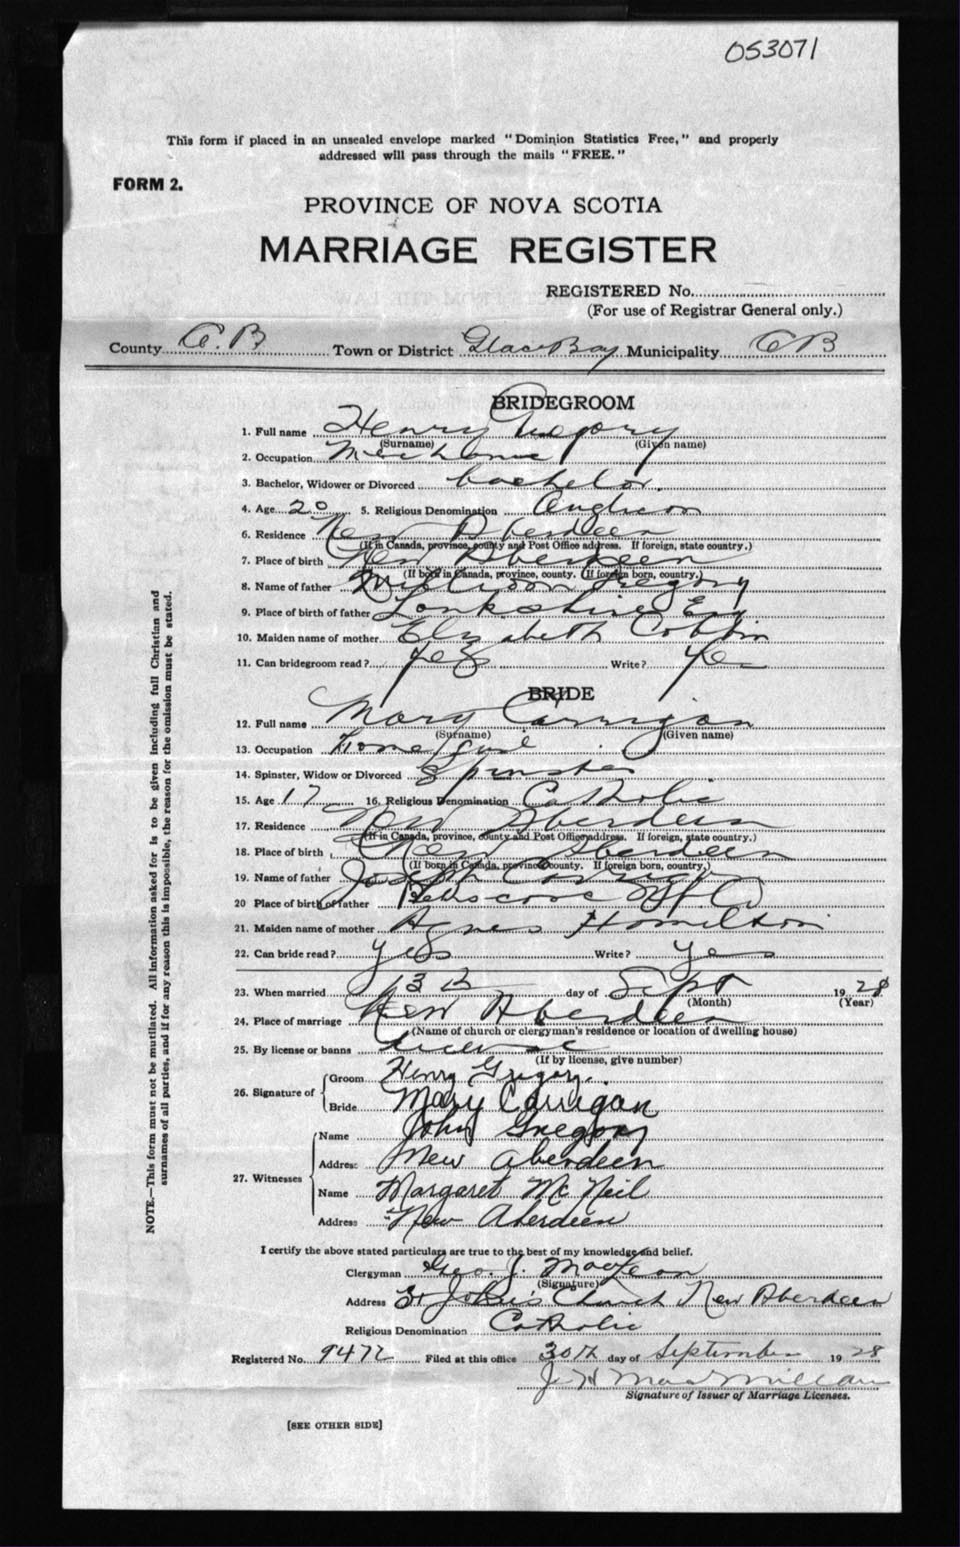 053071
This form if placed in an unsealed envelope marked "Dominion Statistics Free," and properly
addressed will pass through the mails "FREE."
FORM 2.
PROVINCE OF NOVA SCOTIA
MARRIAGE REGISTER
REGISTERED No.
(For use of Registrar General only.)
County C.B. Town or District Glace Bay Municipality CB
BRIDEGROOM
1. Full name Henry Gregory
(Surname) (Given name)
2. Occupation
3. Bachelor, Widower or Divorced bachelor.
4. Age 20 5. Religious Denomination Anglican
6. Residence New Aberdeen
(If in Canada, province, county and Post Office address. If foreign, state country.)
7. Place of birth New Aberdeen
(If born in Canada, province, county. If foreign born, country.)
8. Name of father Gregory
9. Place of birth of father Eng
10. Maiden name of mother Elizabeth
11. Can bridegroom read? yes Write? Yes
BRIDE
12. Full name Mary Carrigan
(Surname) (Given name)
13. Occupation Home girl
14. Spinster, Widow or Divorced Spinster
15. Age 17 16. Religious Denomination Catholic
17. Residence New Aberdeen
(If in Canada, province, county and Post Office address. If foreign, state country.)
18. Place of birth New Aberdeen
(If born in Canada, province county. If foreign born, country.)
19. Name of father Joseph Carrigan
20 Place of birth of father
21. Maiden name of mother Agnes Hamilton
22. Can bride read? yes Write? yes
23. When married 13th day of Sept 1928
(Month) (Year)
24. Place of marriage New Aberdeen
(Name of church or clergyman's residence or location of dwelling house)
25. By license or banns license
(If by license, give number)
26. Signature of Groom Henry Gregory.
Bride Mary Carrigan
27. Witnesses Name John Gregory
Address New Aberdeen
Name Margaret McNeil
Address New Aberdeen
I certify the above stated particulars are true to the best of my knowledge and belief.
Clergyman Geo. J. MacLean
(Signature)
Address St John's Church New Aberdeen
Religious Denomination Catholic
Registered No. 9472 Filed at this office 30th day of September 1928
J H MacMillan
Signature of Issuer of Marriage Licenses.
[SEE OTHER SIDE]
NOTE.—This form must not be mutilated. All information asked for is to be given including full Christian and
surnames of all parties, and if for any reason this is impossible, the reason for the omission must be stated.